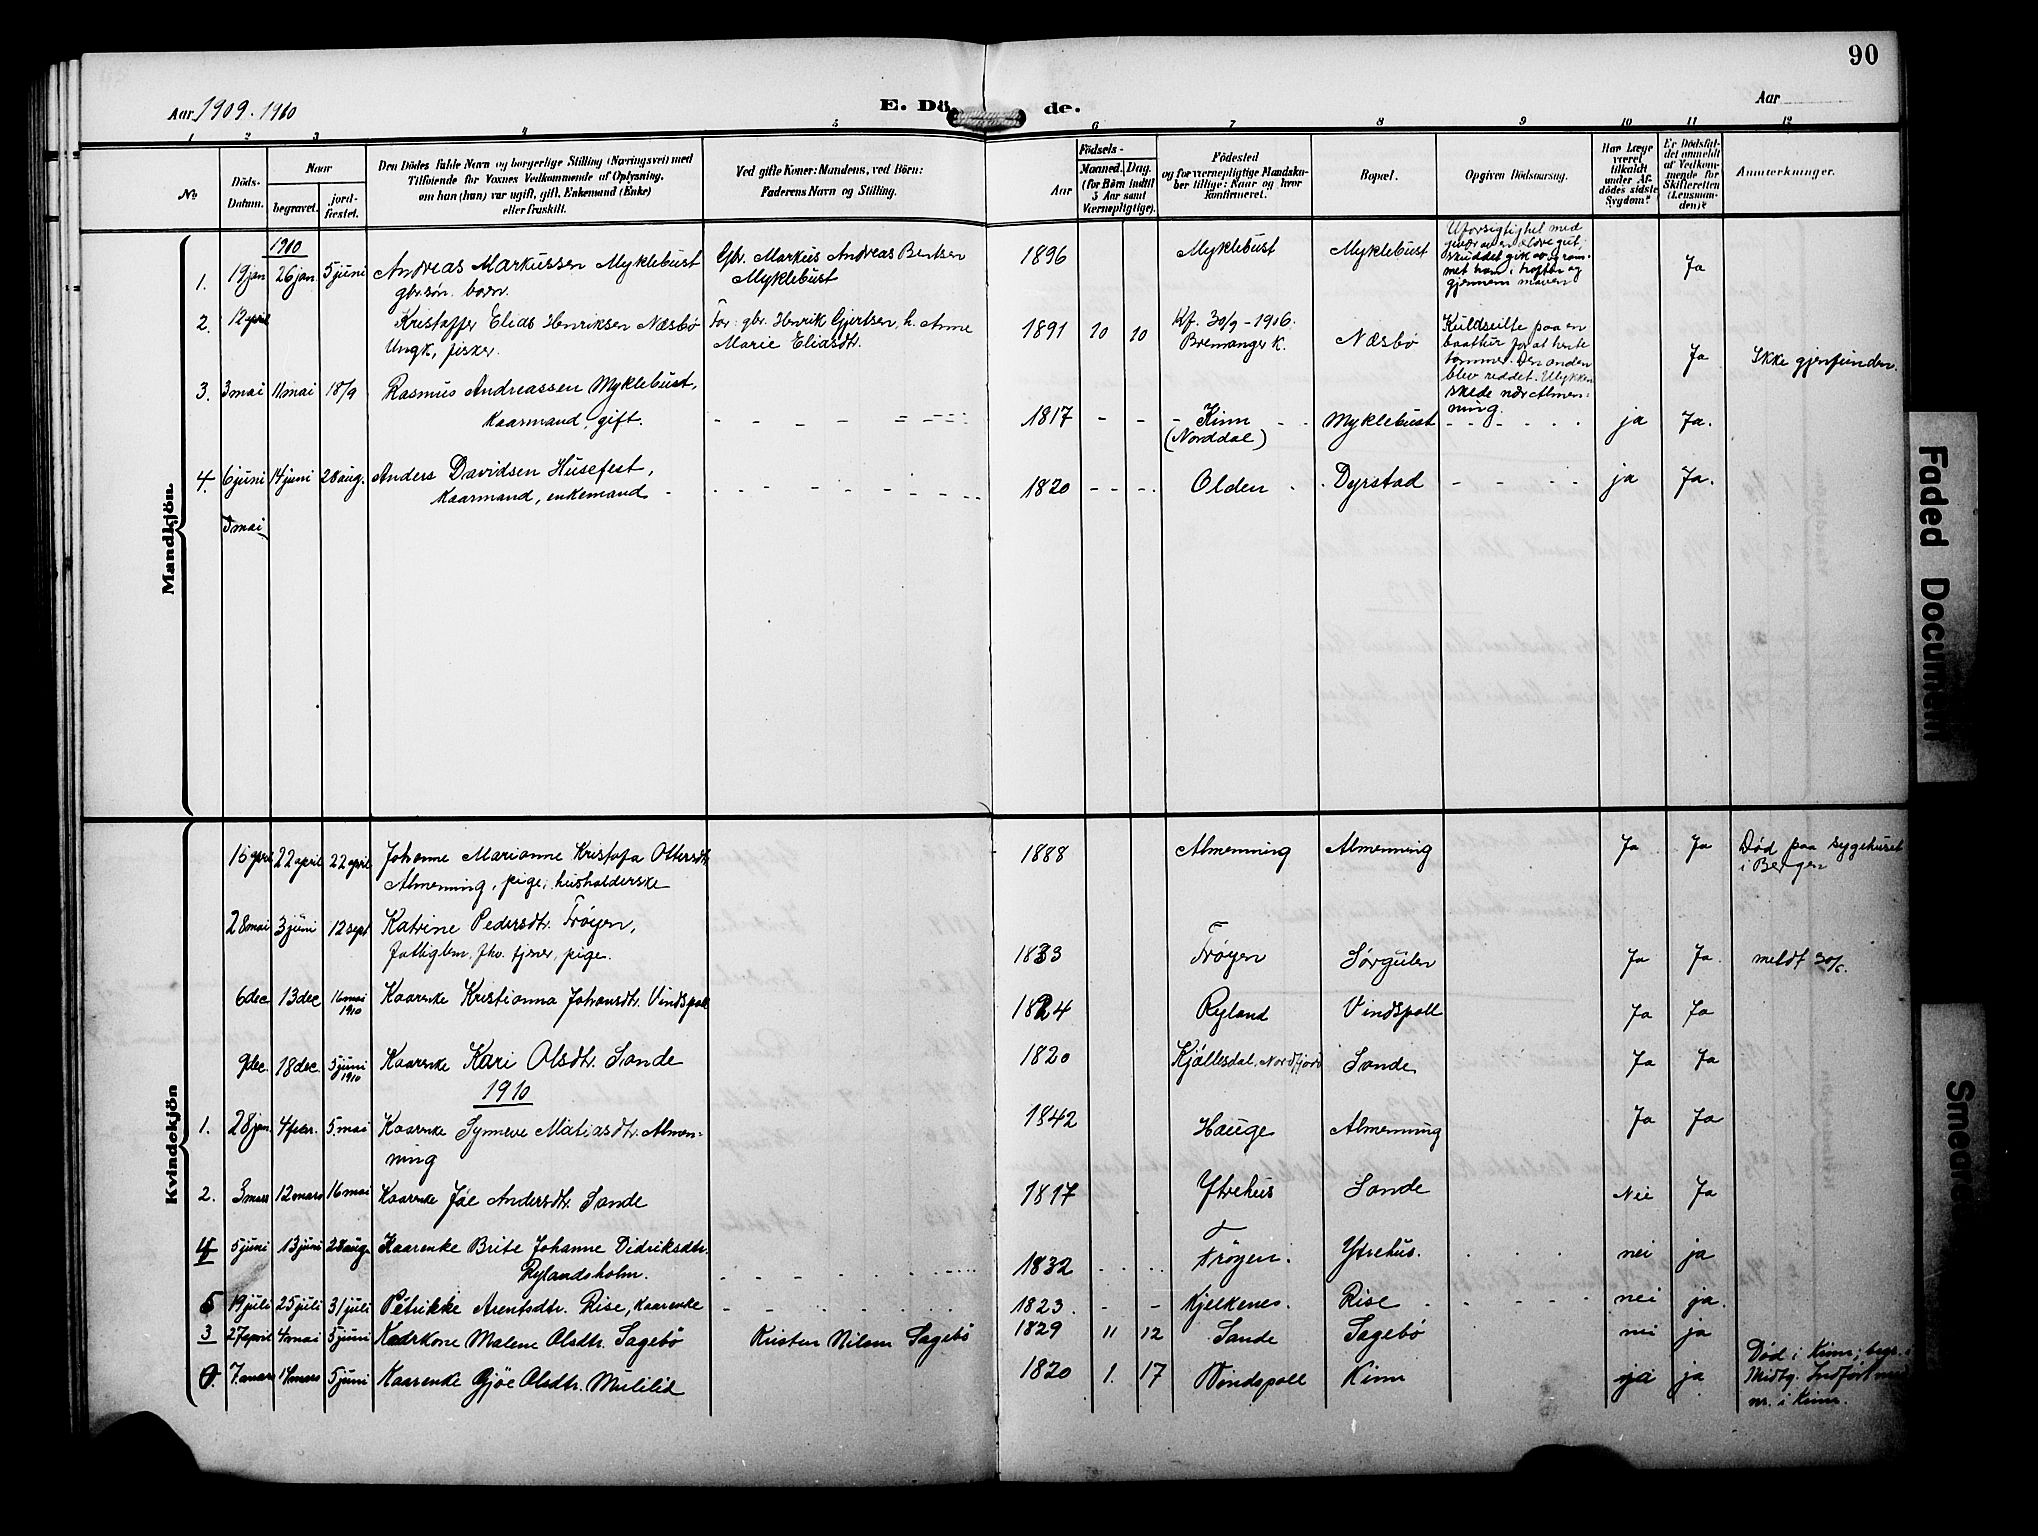 90
Aar 1909. 1910
E. Dö de.
Aar
1 2 3 4 5 6 7 8 9 10 11 12
No.
Döds-Datum.
Naar
begravet.
jord-fæstet.
Den Dödes fulde Navn og borgerlige Stilling (Næringsvei) med
Tilföiende for Voxnes Vedkommende af Oplysning,
om han (hun) var ugift, gift, Enkemand (Enke)
eller fraskilt.
Ved gifte Koner: Mandens, ved Börn:
Faderens Navn og Stilling.
Födsels-
Aar
Maaned. Dag.
(for Börn indtil
5 Aar samt
Værnepligtige).
Födested
og for værnepligtige Mandska-
ber tillige: Naar og hvor
konfirmeret.
Bopæl.
Opgiven Dödsaarsag.
Har Læge
været
tilkaldt
under Af-
dödes sidste
Sygdom?
Er Dödsfal-
det anmeldt
af Vedkom-
mende for
Skifteretten
(Lensman-
den)?
Anmerkninger.
Mandkjön.
1910
1. 19 jan 26 jan 5 juni Andreas Markussen Myklebust Gbr. Markus Andreas Bentsen 1896 Myklebust Myklebust Uforsigtighet med
gbr.søn. barn. Myklebust Ja
skuddet gik av og ram-
met ham i hoften og
gjennem maven
2. 12 april Kristoffer Elias Henriksen Næsbø For: gbr. Henrik Gjertsen, h. Anne 1891 10 10 Kf. 30/9 - 1906. Næsbø Kuldseilte paa en
Ungk., fisker. Marie Eliasdt. Bremanger K. baattur for at hente
tømmer. Den anden Ja Ikke gjenfunden.
blev reddet. Ulykken
skede nær Almen-
ning.
3. 3 mai 11 mai 18/9 Rasmus Andreassen Myklebust,
Kaarmand, gift. 1817 - - Kinn Myklebust ja Ja.
(Norddal)
4. 6 juni 14 juni 28 aug. Anders Davidsen Husefest,
Kaarmand, enkemand 1820 Olden Dyrstad ja Ja.
5 mai
Kvindekjön
15 april 22 april 22 april Johanne Marianne Kristofa Ottersdt. 1888 Almenning Almenning Ja Ja Død paa sygehuset
Almenning, pige, husholderske i Bergen
28 mai 3 juni 12 sept Katrine Pedersdtr. Frøyen,
fattiglem, fhv. tjener, pige. 1833 Frøyen Sørgulen Ja Ja. meldt
6 dec 13 dec 16 mai 1910 Kaarenke Kristianna Johansdtr. Vindspoll 1824 Ryland Vindspoll Ja Ja
9 dec. 18 dec. 5 juni 1910 Kaarenke Kari Olsdtr. Sande 1820 Kjøllesdal, Nordfjord Sande Ja Ja
1910
1. 28 jan. 4 febr. 5. mai Kaarenke Synneve Matiasdtr. Almen- 1842 Hauge Almenning Ja Ja
ning
2. 3 mars 12 mars 16 mai Kaarenke Jøe Andersdtr. Sande 1817 Ytrehus Sande Nei Ja
4 5 juni 13 juni 28 aug. Kaarenke Brite Johanne Didriksdtr.
Rylandsholm. 1832 Frøyen. Ytrehus. nei ja
5 19 juli 25 juli 31 juli Petrikke Arentsdtr. Rise, kaarenke 1823. Kjelkenes. Rise nei ja.
3 27 april 4 mai 5 juni Kaarkone Malene Olsdtr. Sagebø Kristen Nilsen Sagebø 1829 11 12 Sande Sagebø nei ja
0. 7 mars 14 mars 5 juni Kaarenke Gjøe Olsdtr. Mulelid 1820 1. 17 Vindspoll Kinn ja ja Død i Kinn; begr. i
Midtg. Indført med
nr. i Kinn.
Faded Document
Smeared